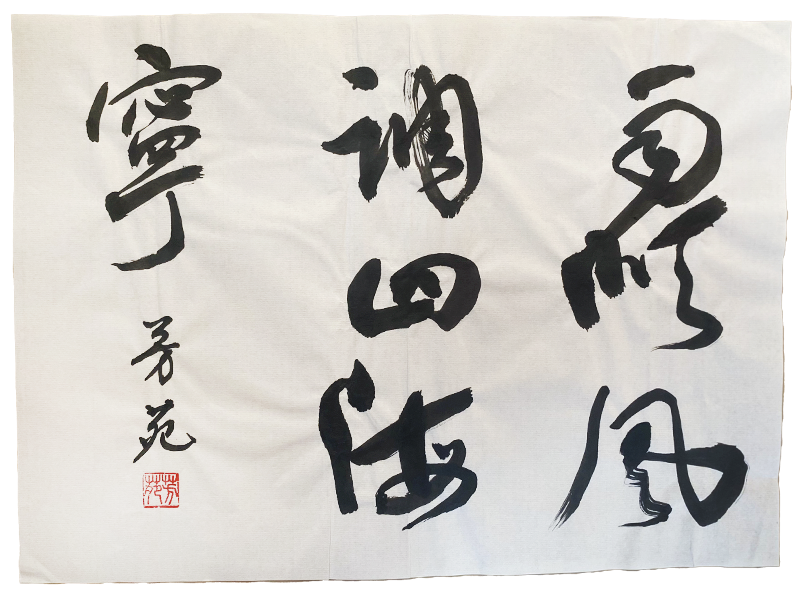 雨順風
調四海
寧
芳苑
芳苑